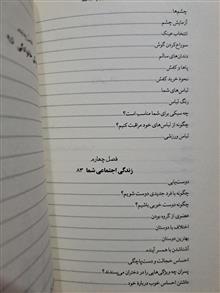 چشم‌ها
آزمایش چشم
انتخاب عینک
سوراخ کردن گوش
دندان‌های سالم
پاها و کفش
نحوه خرید کفش
لباس‌های شما
رنگ لباس
چه سبکی برای شما مناسب است؟
چگونه از لباس‌های خود مراقبت کنیم؟
لباس ورزشی
فصل چهارم
زندگی اجتماعی شما ۸۳
دوست‌یابی
چگونه با فرد جدیدی دوست شویم؟
چگونه دوست خوبی باشیم؟
عضوی از گروه بودن
اختلاف با دوستان
بهترین دوستان
آشنا شدن با همسر آینده
احساس خجالت و دست‌پاچگی
پسران چه ویژگی‌هایی را در دختران می‌پسندند؟
داشتن احساس خوب درباره خود